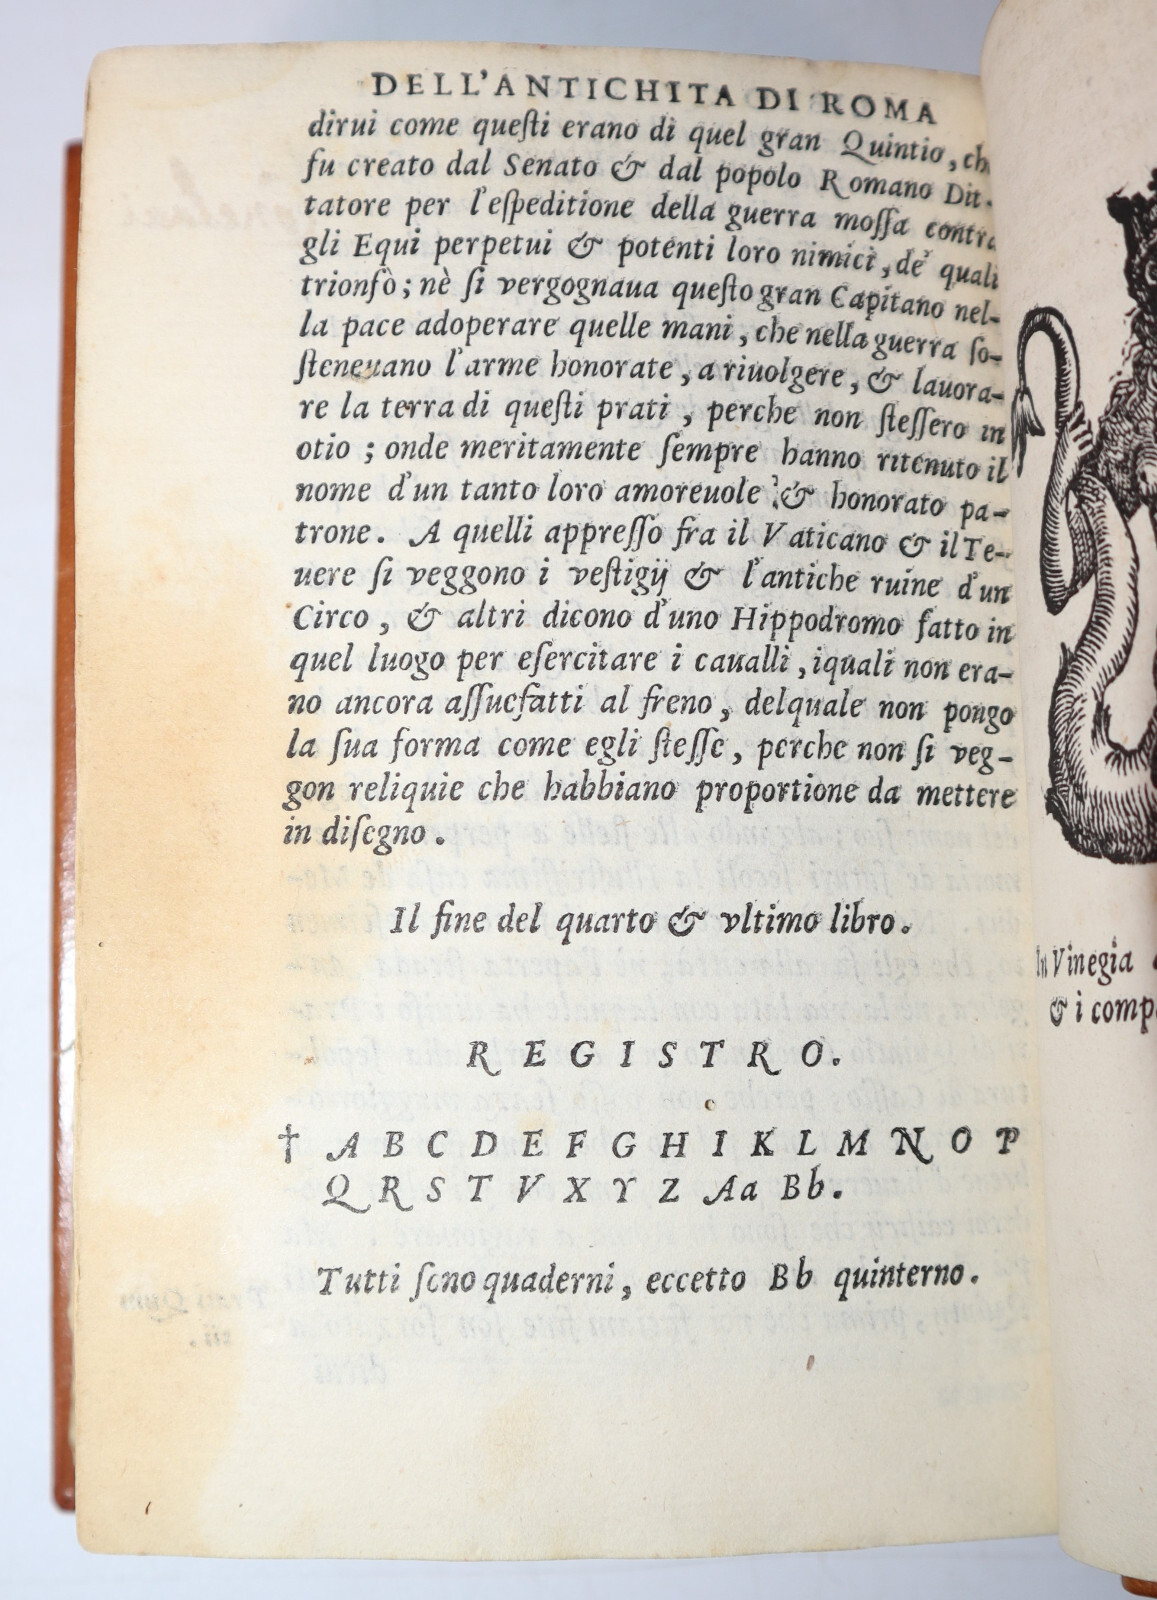 DELL'ANTICHITA DI ROMA
dirui come queſti erano di quel gran Quintio, che
fu creato dal Senato & dal popolo Romano Dit-
tatore per l'eſpeditione della guerra moſſa contra
gli Equi perpetui & potenti loro nimici, de' quali
trionfò; nè ſi vergognaua queſto gran Capitano nel-
la pace adoperare quelle mani, che nella guerra ſo-
ſteneuano l'arme honorate, a riuolgere, & lauora-
re la terra di queſti prati, perche non ſteſſero in
otio; onde meritamente ſempre hanno ritenuto il
nome d'un tanto loro amoreuole & honorato pa-
trone. A quelli appreſſo fra il Vaticano & il Te-
uere ſi veggono i veſtigij & l'antiche ruine d'un
Circo, & altri dicono d'uno Hippodromo fatto in
quel luogo per eſercitare i caualli, iquali non era-
no ancora aſſuefatti al freno, delquale non pongo
la ſua forma come egli ſteſſe, perche non ſi veg-
gon reliquie che habbiano proportione da mettere
in diſegno.
Il fine del quarto & vltimo libro.
REGISTRO.
† A B C D E F G H I K L M N O P
Q R S T V X Y Z Aa Bb.
Tutti ſono quaderni, eccetto Bb quinterno.
In Vinegia
& i comp